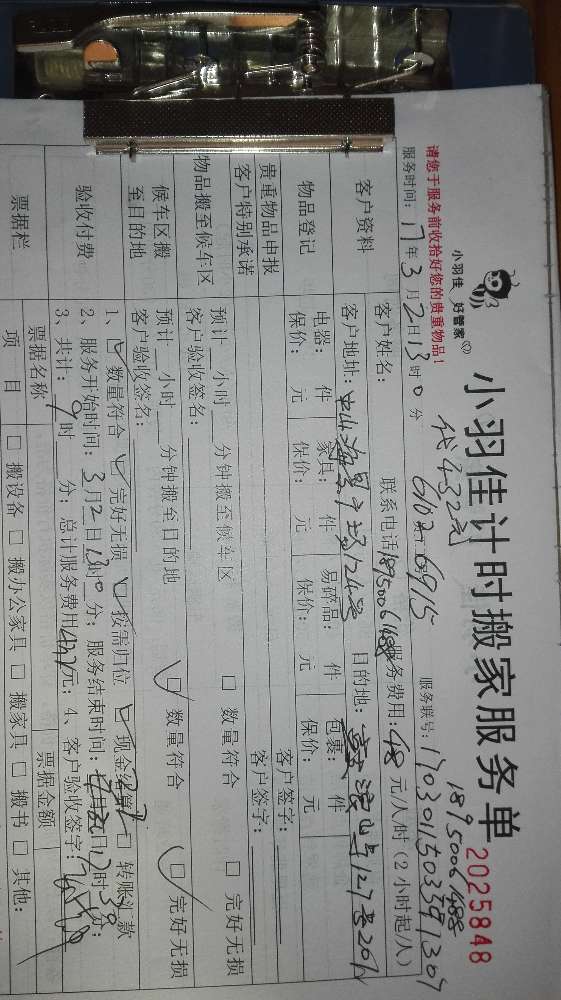 小羽佳计时搬家服务单
2025848
小羽佳 好管家
请您于服务前收拾好您的贵重物品!
服务时间: 17年3月2日13时0分
服务联号:
18950061488
客户资料
客户姓名: 联系电话18950061488服务费用:48元/人/时(2小时起/人)
客户地址: 目的地:
物品登记
电器: 件 家具: 件 易碎品: 件 包裹: 件
保价: 元 保价: 元 保价: 元 保价: 元
贵重物品申报
客户签字:
客户特别承诺
客户签字:
物品搬至候车区
预计__小时__分钟搬至候车区 □ 数量符合 □ 完好无损
客户验收签名:
候车区搬至目的地
预计__小时__分钟搬至目的地 ☑ 数量符合 ☑ 完好无损
客户验收签名:
验收付费
1、☑ 数量符合 ☑ 完好无损 ☑ 按需归位 ☑ 现金结算 □ 转账汇款
2、服务开始时间:3月2日13时0分; 服务结束时间:
3、共计: 时 分; 总计服务费用 元; 4、客户验收签字:
票据栏
票据名称 票据金额
项目 □ 搬设备 □ 搬办公家具 □ 搬家具 □ 搬书 □ 其他: